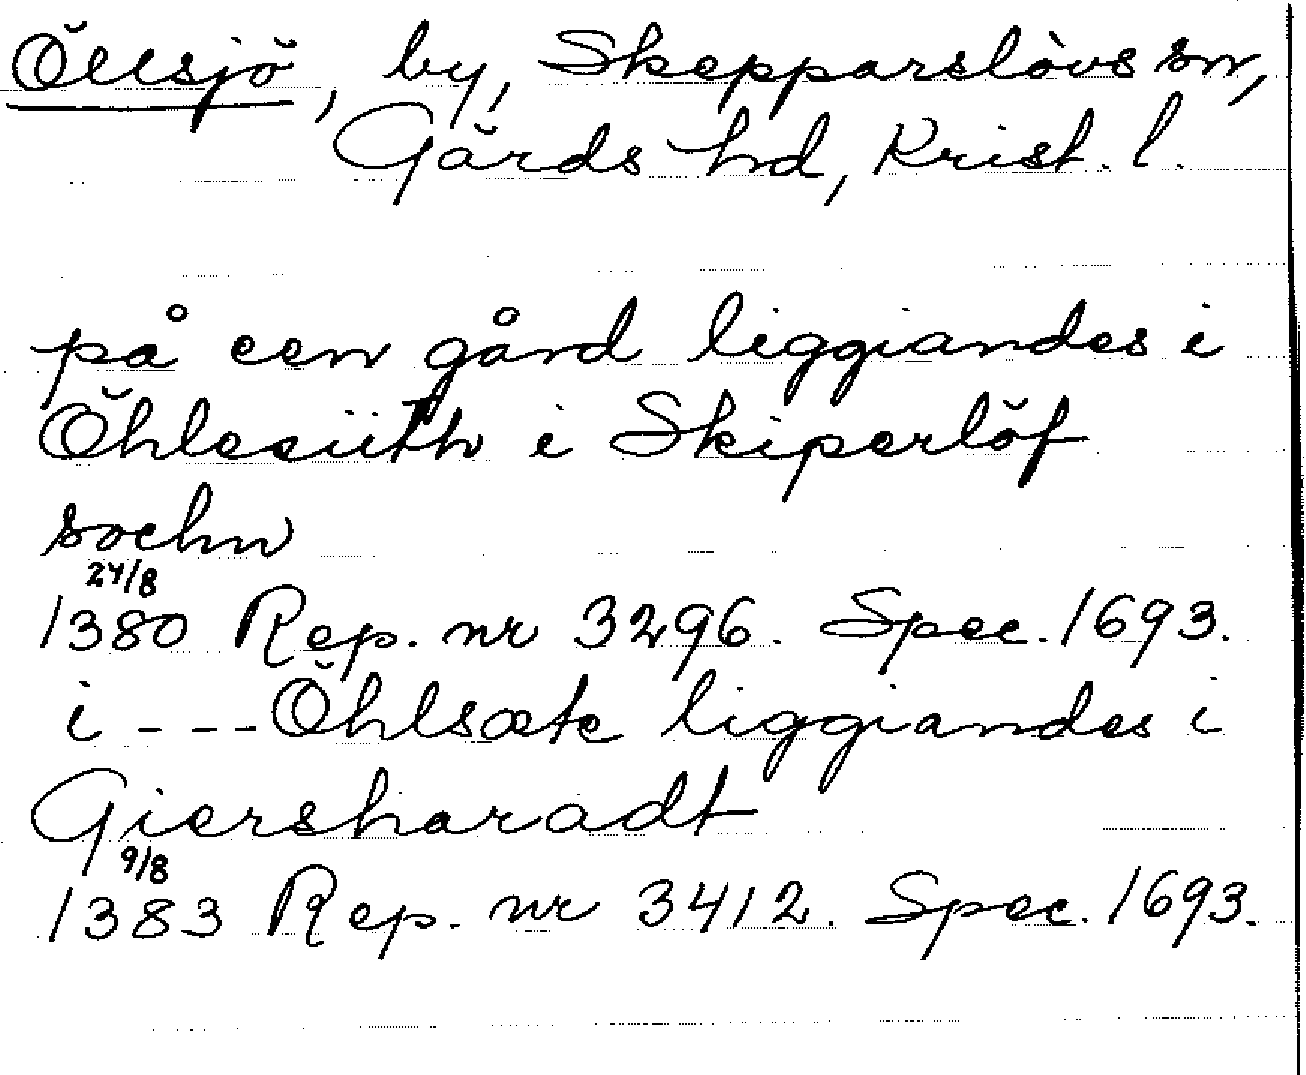 Öllsjö, by, Skepparslövs sn,
Gärds hd, Krist. l.
på een gård liggiandes i
Öhlesiith i Skiperlöf
sochn
24/8
1380 Rep. nr 3296. Spec. 1693.
i - - - Öhlsæte liggiandes i
Giersharadt
9/8
1383 Rep. nr 3412. Spec. 1693.